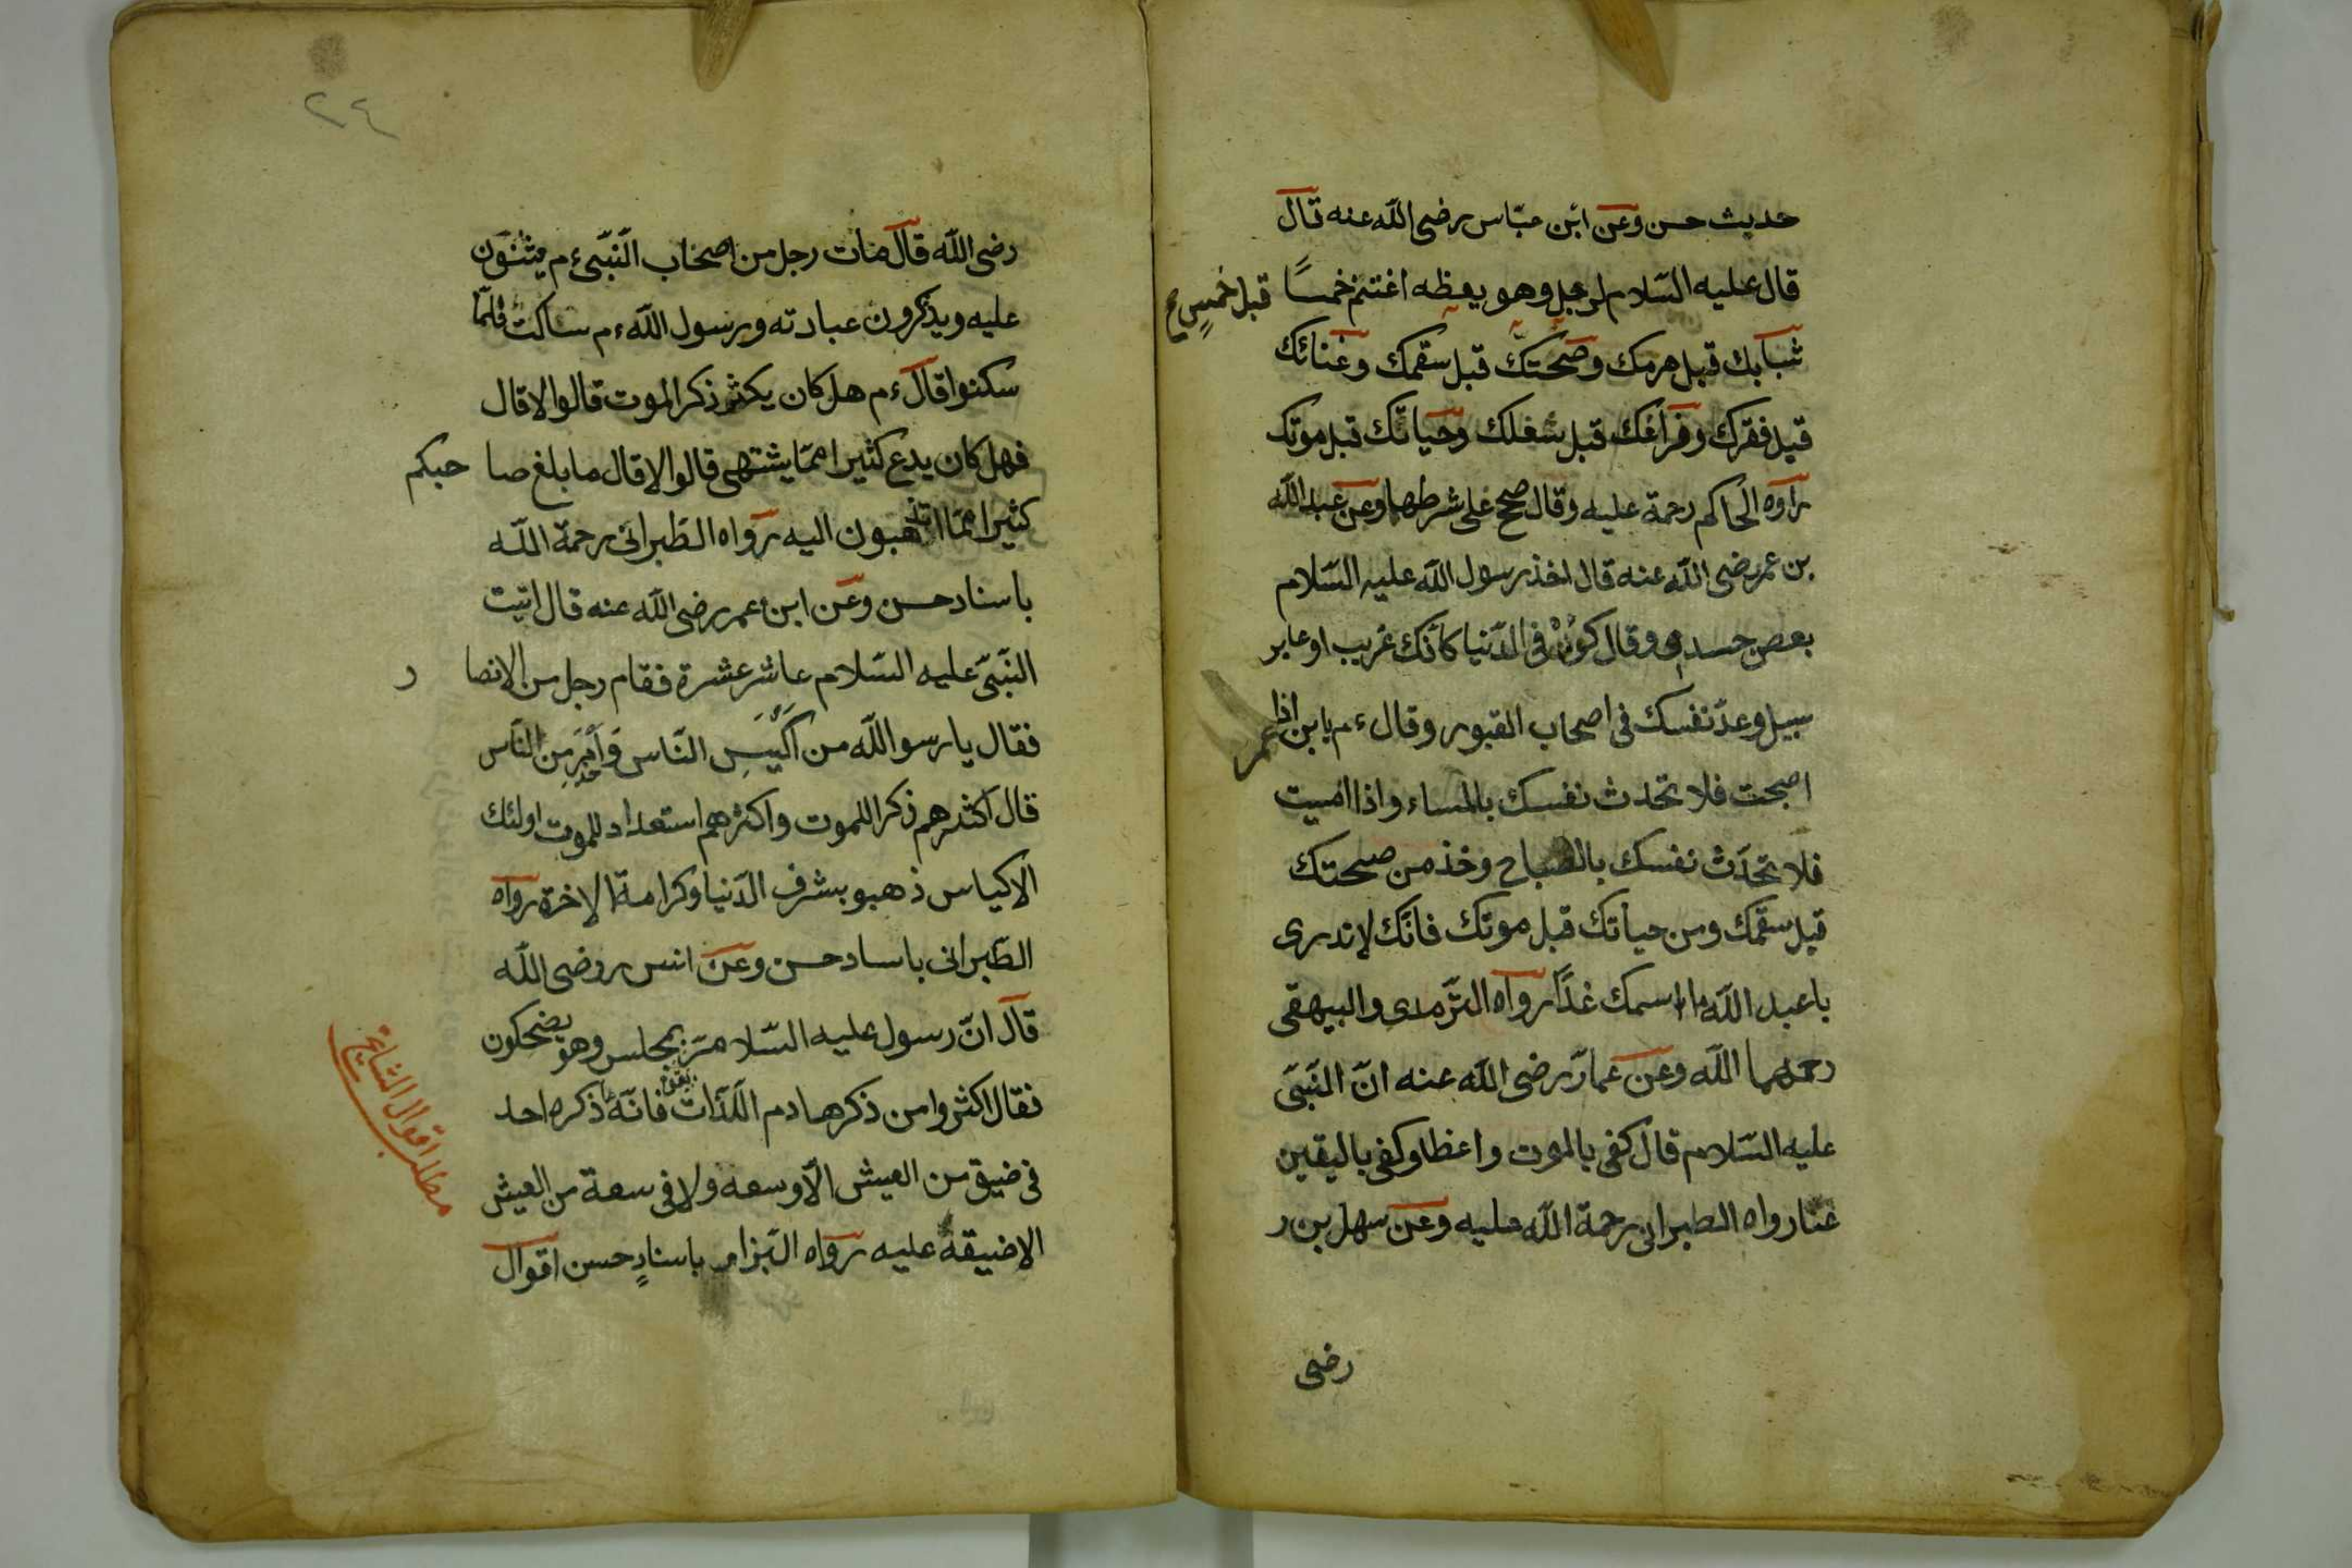 حديث حسن وعن ابن عبّاس رضى اللّه عنه قال
قال عليه السّلام لرجل وهو يعظه اغتنم خمسًا قبل خمسٍ صح
شبابك قبل هرمك وصحّتك قبل سقمك وغنائك
قبل فقرك وفراغك قبل شغلك وحياتك قبل موتك
رواه الحاكم رحمة عليه وقال صحح على شرطهما وعن عبد اللّه
بن عمر رضى اللّه عنه قال اخذ رسول اللّه عليه السّلام
بعض جسدى وقال كن فى الدّنيا كأنّك غريب او عابر
سبيل وعدّ نفسك فى اصحاب القبور وقال ءم يا بن عمر اذا
اصبحت فلا تحدث نفسك بالمساء واذا امسيت
فلا تحدّث نفسك بالصباح وخذ من صحتك
قبل سقمك ومن حياتك قبل موتك فانّك لا تدرى
يا عبد اللّه ما اسمك غدًا رواه التّرمذى والبيهقى
رحمهما اللّه وعن عمار رضى اللّه عنه انّ النّبىّ
عليه السّلام قال كفى بالموت واعظا وكفى باليقين
غنا رواه الطبرانى رحمة اللّه عليه وعن سهل بن ر
رضى
٢٤
رضى اللّه قال مات رجل من اصحاب النّبىّ ءم يثنون
عليه ويذكرون عبادته ورسول اللّه ءم ساكت فلمّا
سكنوا قال ءم هل كان يكثر ذكر الموت قالوا لا قال
فهل كان يدع كثيرا ممّا يشتهى قالوا لا قال ما بلغ صا حبكم
كثيرا ممّا تذهبون اليه رواه الطّبرانى رحمة اللّه
باسناد حسن وعن ابن عمر رضى اللّه عنه قال اتيت
النّبىّ عليه السّلام عاشر عشرة فقام رجل من الانصا ر
فقال يا رسو اللّه من اكيس النّاس و من النّاس
قال اكثرهم ذكرا للموت واكثرهم استعداد للموت اولئك
الاكياس ذهبو بشرف الدّنيا وكرامة الاخرة رواه
الطّبرانى باساد حسن وعن انس روضى اللّه
قال انّ رسول عليه السّلام مرّ بمجلس وهو يضحكون
فقال اكثروا من ذكر هادم اللّذّات فانّه ما ذكره احد
فى ضيق من العيش الّا وسعه ولا فى سعة من العيش
الا ضيقه عليه رواه البّزار باسنادٍ حسن اقوال
مطلب اقوال المشايخ